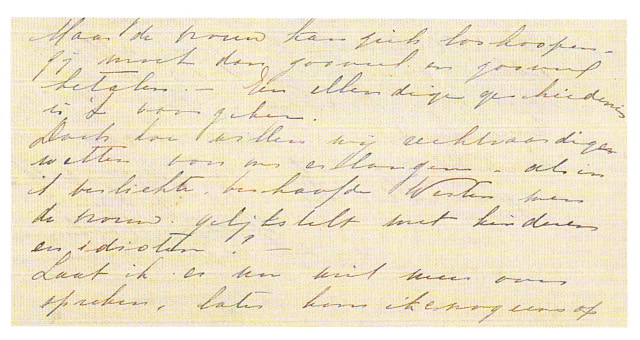 Maar de vrouw kan zich loskoopen -
Zij moet dan zooveel en zooveel
betalen. - Een ellendige geschiedenis
is 't voor zeker.
Doch hoe willen wij rechtvaardige
wetten voor ons erlangen, als in
't verlichte, beschaafde Westen men
de vrouw gelijkstelt met kinderen
en idioten!? -
Laat ik er nu niet meer over
spreken, later kom ik er nog eens op